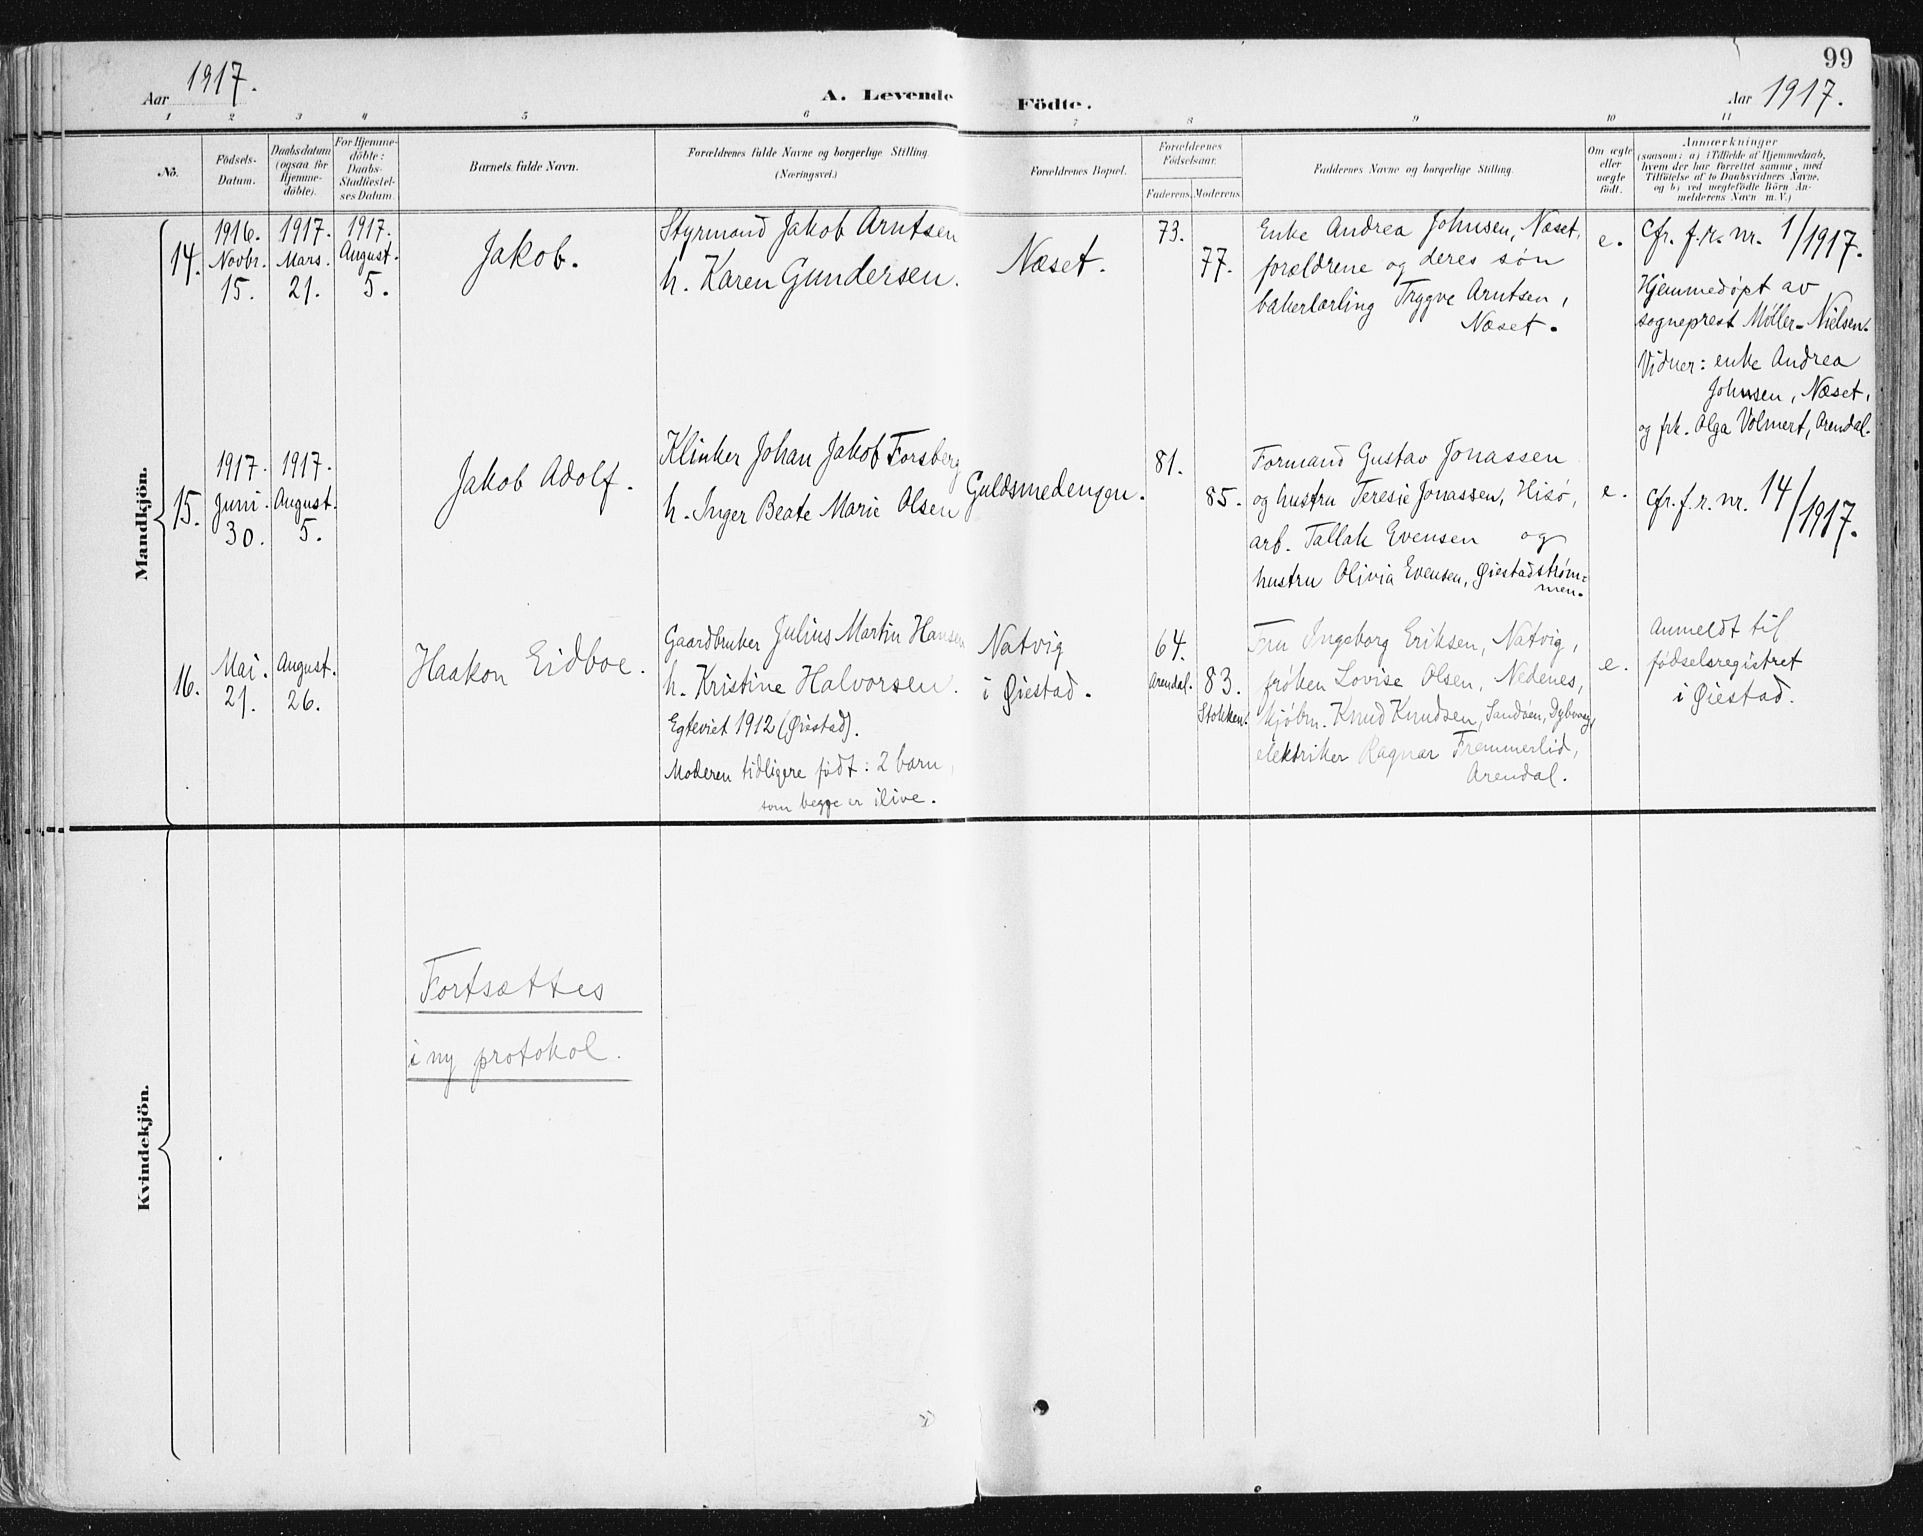 99
Aar 1917.
A. Levende Födte.
Aar 1917.
1 2 3 4 5 6 7 8 9 10 11
No.
Födsels-
Datum.
Daabsdatum
(ogsaa for
Hjemme-
döbte).
For Hjemme-
döbte:
Daabs-
Stadfæstel-
ses Datum.
Barnets fulde Navn.
Forældrenes fulde Navne og borgerlige Stilling.
(Næringsvei.)
Forældrenes Bopæl.
Forældrenes
Fødselsaar.
Faderens.
Moderens.
Faddernes Navne og borgerlige Stilling.
Om ægte
eller
uægte
født.
Anmærkninger
(saasom: a) i Tilfælde af Hjemmedaab,
hvem der har forrettet samme, med
Tilføielse af to Daabsvidners Navne,
og b) ved uægtefødte Börn An-
melderens Navn m. V.)
Mandkjön.
14.
1916.
Novbr.
15.
1917.
Mars.
21.
1917.
August.
5.
Jakob.
Styrmand Jakob Arntsen
h. Karen Gundersen.
Næset.
73.
77.
Enke Andrea Johnsen, Næset,
forældrene og deres søn
bakerlærling Trygve Arntsen,
Næset.
e.
Cfr. f.r. nr. 1/1917.
Hjemmedøpt av
sogneprest Møller-Nielsen.
Vidner: enke Andrea
Johnsen, Næset,
og frk. Olga Volmert, Arendal.
15.
1917.
Juni.
30.
1917.
August.
5.
Jakob Adolf.
Klinker Johan Jakob Forsberg
h. Inger Beate Marie Olsen
Guldsmedengen.
81.
85.
Formand Gustav Jonassen
og hustru Teresie Jonassen, Hisø,
arb. Tallak Evensen og
hustru Olivia Evensen, Øiestadstrøm-
men.
e.
Cfr. f. r. nr. 14/1917.
16.
Mai.
21.
August.
26.
Haakon Eidboe.
Gaardbruker Julius Martin Hansen
h. Kristine Halvorsen.
Egteviet 1912 (Øiestad).
Moderen tidligere født: 2 barn,
som begge er ilive.
Natvig
i Øiestad.
64.
Arendal.
83.
Stokken.
Fru Ingeborg Eriksen, Natvig,
frøken Lovise Olsen, Nedenes,
kjøbm. Knud Knudsen, Sandøen, Dybvaag,
elektriker Ragnar Fremmerlid,
Arendal.
e.
Anmeldt til
fødselsregistret
i Øiestad.
Kvindekjön.
Fortsættes
i ny protokol.